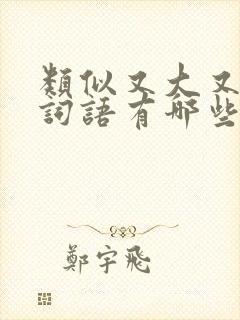 類似又大又
詞語有哪些
鄭宇飛